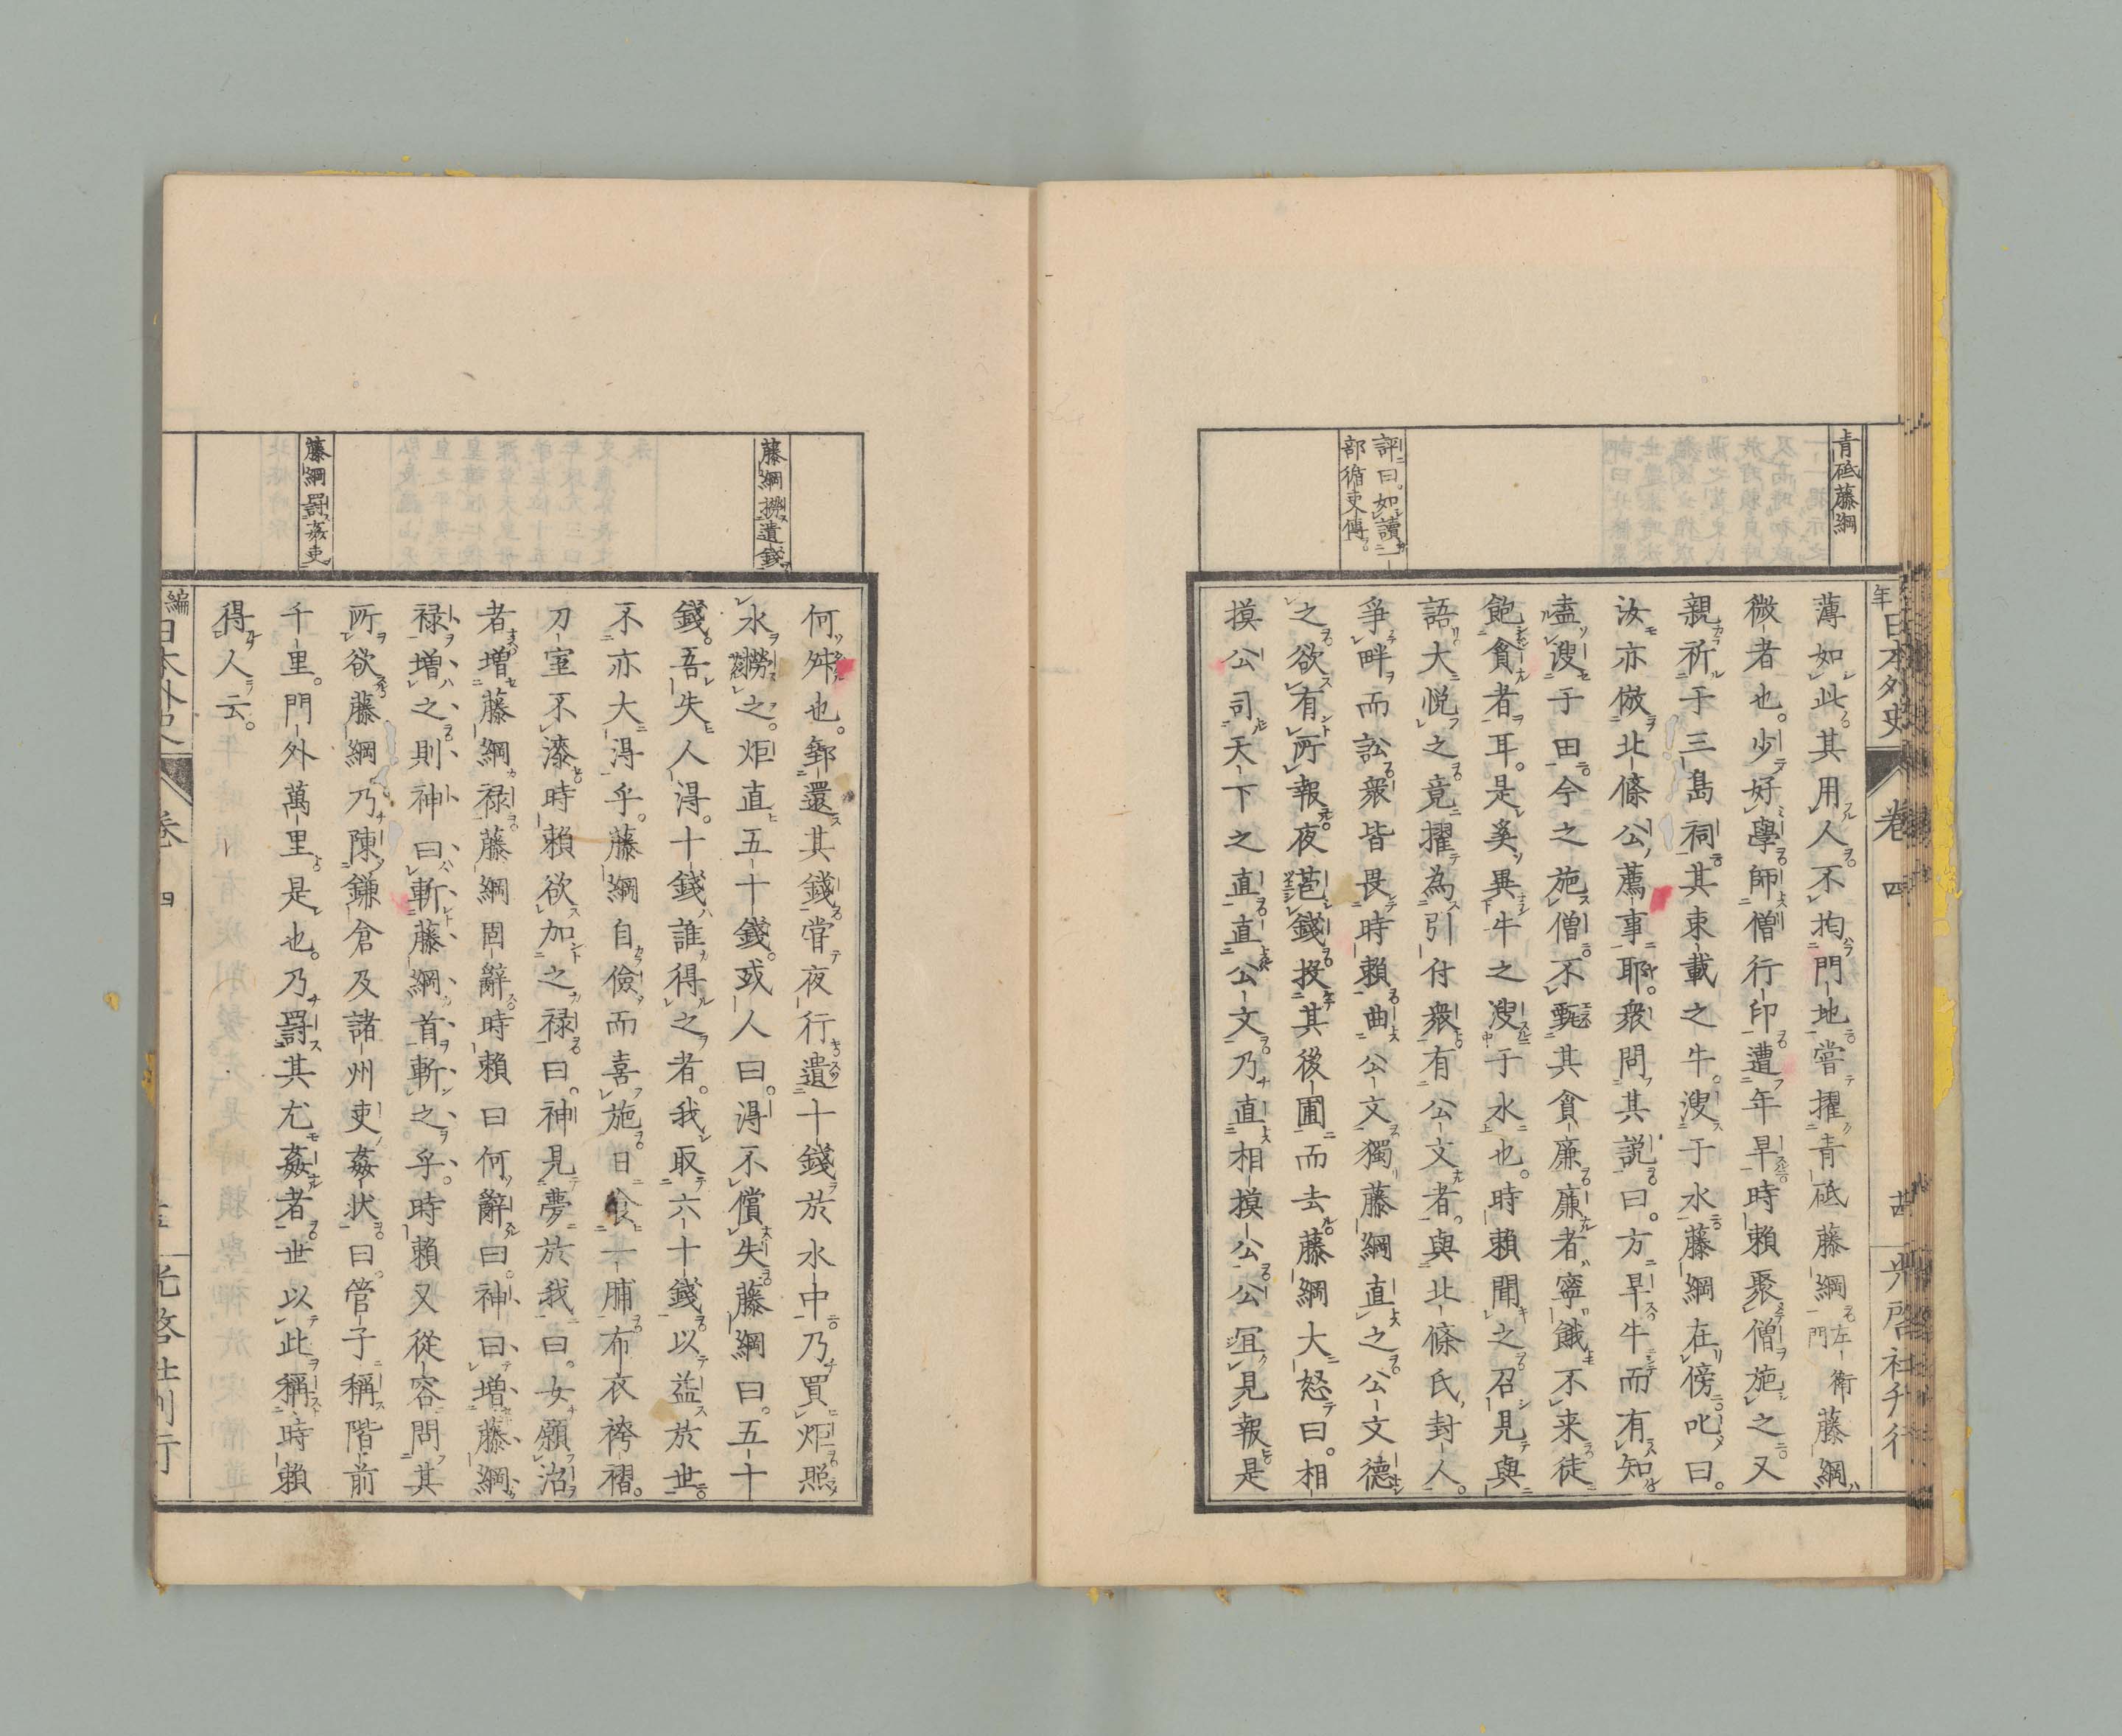 青砥藤綱
評曰。如讀一
部循吏傳。
編年日本外史 卷四 光啓社刊行
薄如此。其用人不拘門地。嘗擢青砥藤綱左衛門藤綱
微者也。少好學師僧行印。遭年旱時賴聚僧施之又
親祈于三島祠其束載之牛。溲于水。藤綱在傍叱曰。
汝亦倣北條公薦事耶。衆問其説曰。方旱牛而有知
盡溲于田。今之施僧。不甄其貪廉。廉者寧餓不来。徒
飽貪者耳。是奚異牛之溲于水也。時賴聞之。召見與
語大悦之。竟擢為引付衆。有公文者。與北條氏封人。
爭畔而訟。衆皆畏時賴曲公文。獨藤綱直之。公文德
之欲有所報。夜苞錢投其後圃而去。藤綱大怒曰。相
摸公司天下之直。直公文。乃直相摸公。公冝見報。是
藤綱撈遺錢
藤綱罰姦吏
何舛也。郵還其錢。嘗夜行遺十錢於水中。乃買炬照
水撈之。炬直五十錢。或人曰。得不償失。藤綱曰。五十
錢。吾失人得。十錢誰得之者。我取六十錢。以益於世。
不亦大得乎。藤綱自儉而喜施。日食一脯。布衣袴褶。
刀室不漆。時賴欲加之禄。曰。神見夢於我曰。女願治
者。増藤綱禄。藤綱固辭。時賴曰何辭。曰。神曰増藤綱
禄増之。則神曰斬藤綱首斬之乎。時賴又從容問其
所欲。藤綱乃陳鎌倉及諸州吏姦状。曰。管子稱階前
千里。門外萬里。是也。乃罰其尤姦者。世以此稱時賴
得人云。
編年日本外史 卷四 光啓社刊行